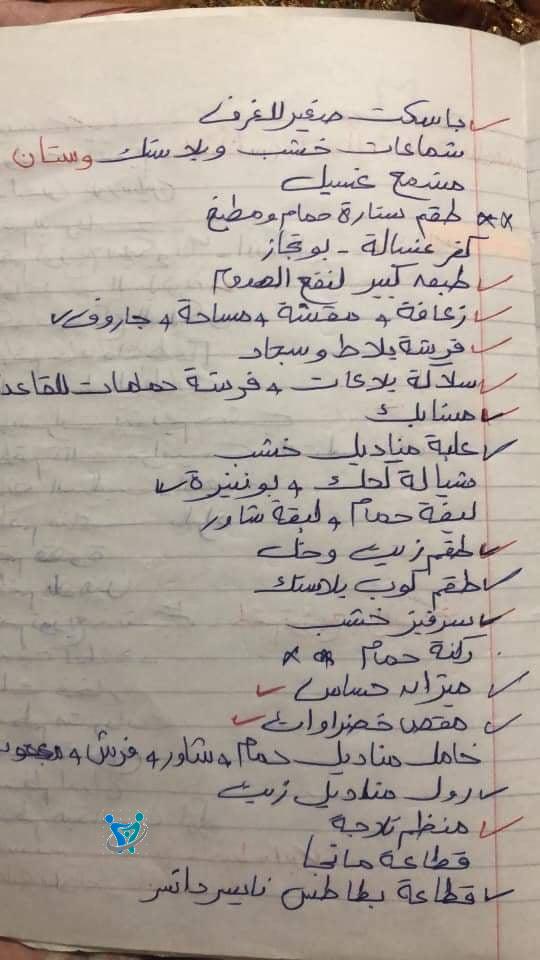 باسكت صغير للغرف
شماعات خشب وبلاستك وستان
مشمع غسيل
طقم ستارة حمام ومطبخ
كفر غسالة - بوتجاز
طبق كبير لنقع الهدوم
زعافة + مقشة + مساحة + جاروف
فرشة بلاط وسجاد
سلالة بلاعات + فرشة حمامات للقاعدة
مشابك
علبة مناديل خشب
شيالة لحلل + بونبنيرة
ليفة حمام + ليفة شاور
طقم زيت وخل
طقم كوب بلاستك
سرفيز خشب
ركنة حمام
ميزان حساس
مقص خضراوات
حامل مناديل حمام + شاور + فرش +
رول مناديل زيت
منظم تلاجة
قطاعة مانجا
قطاعة بطاطس نايسر دايسر